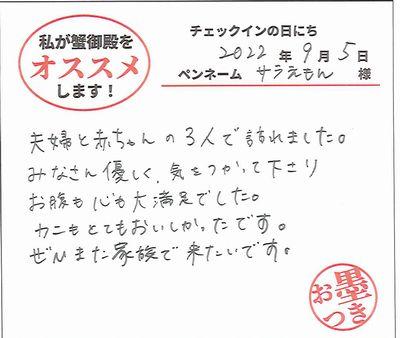 私が蟹御殿を
オススメ
します!
チェックインの日にち
2022 年 9 月 5 日
ペンネーム サラえもん 様
夫婦と赤ちゃんの3人で訪れました。
みなさん優しく、気をつかって下さり
お腹も心も大満足でした。
カニもとてもおいしかったです。
ぜひまた家族で来たいです。
お墨つき